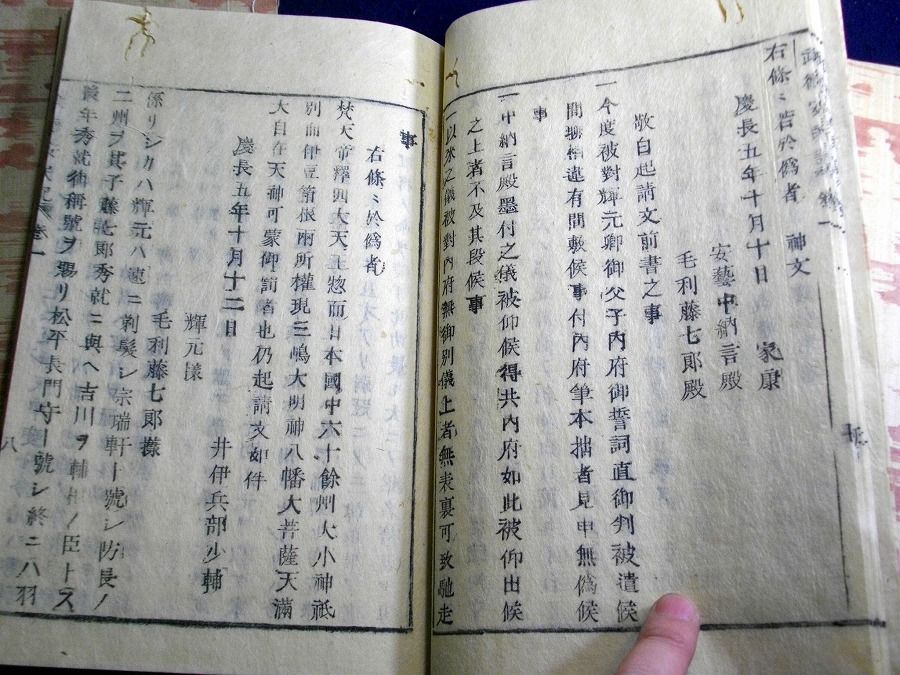 右條〻若於偽者　神文
慶長五年十月十日　家康
安藝中納言殿
毛利藤七郎殿
敬白起請文前書之事
一今度被對輝元卿御父子内府御誓詞直御判被遣候
間聊相違有間敷候事付内府筆本拙者見申無偽候
事
一中納言殿墨付之儀被仰候得共内府如此被仰出候
之上者不及其段候事
一以來之儀被對内府無御別儀上者無表裏可致馳走
事
右條〻於偽者
梵天帝釋四大天王惣而日本國中六十餘州大小神祇
別而伊豆箱根兩所權現三嶋大明神八幡大菩薩天滿
大自在天神可蒙御罰者也仍起請文如件
慶長五年十月十二日　井伊兵部少輔
輝元樣
毛利藤七郎樣
係リシカハ輝元ハ速ニ剃髮シ宗瑞軒ト號シ防長ノ
二州ヲ其子藤七郎秀就ニ與ヘ吉川ヲ輔相ノ臣トス
後年秀就御稱號ヲ賜リ松平長門守ト號シ終ニハ羽
八